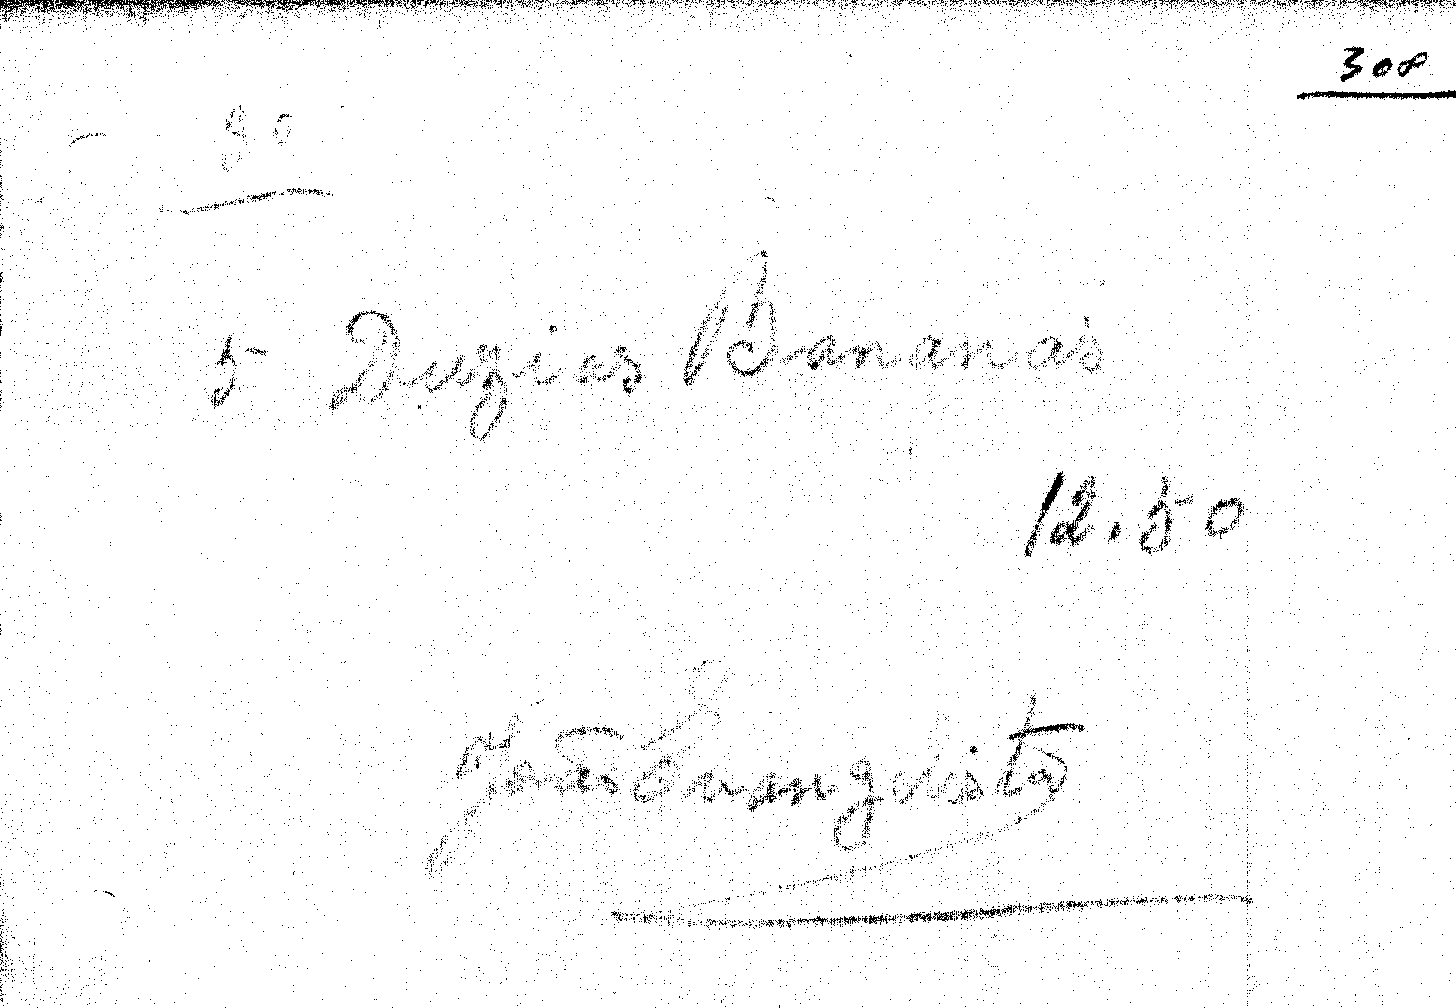 308
90
5 Duzias Bananas
12.50
João Evangelista